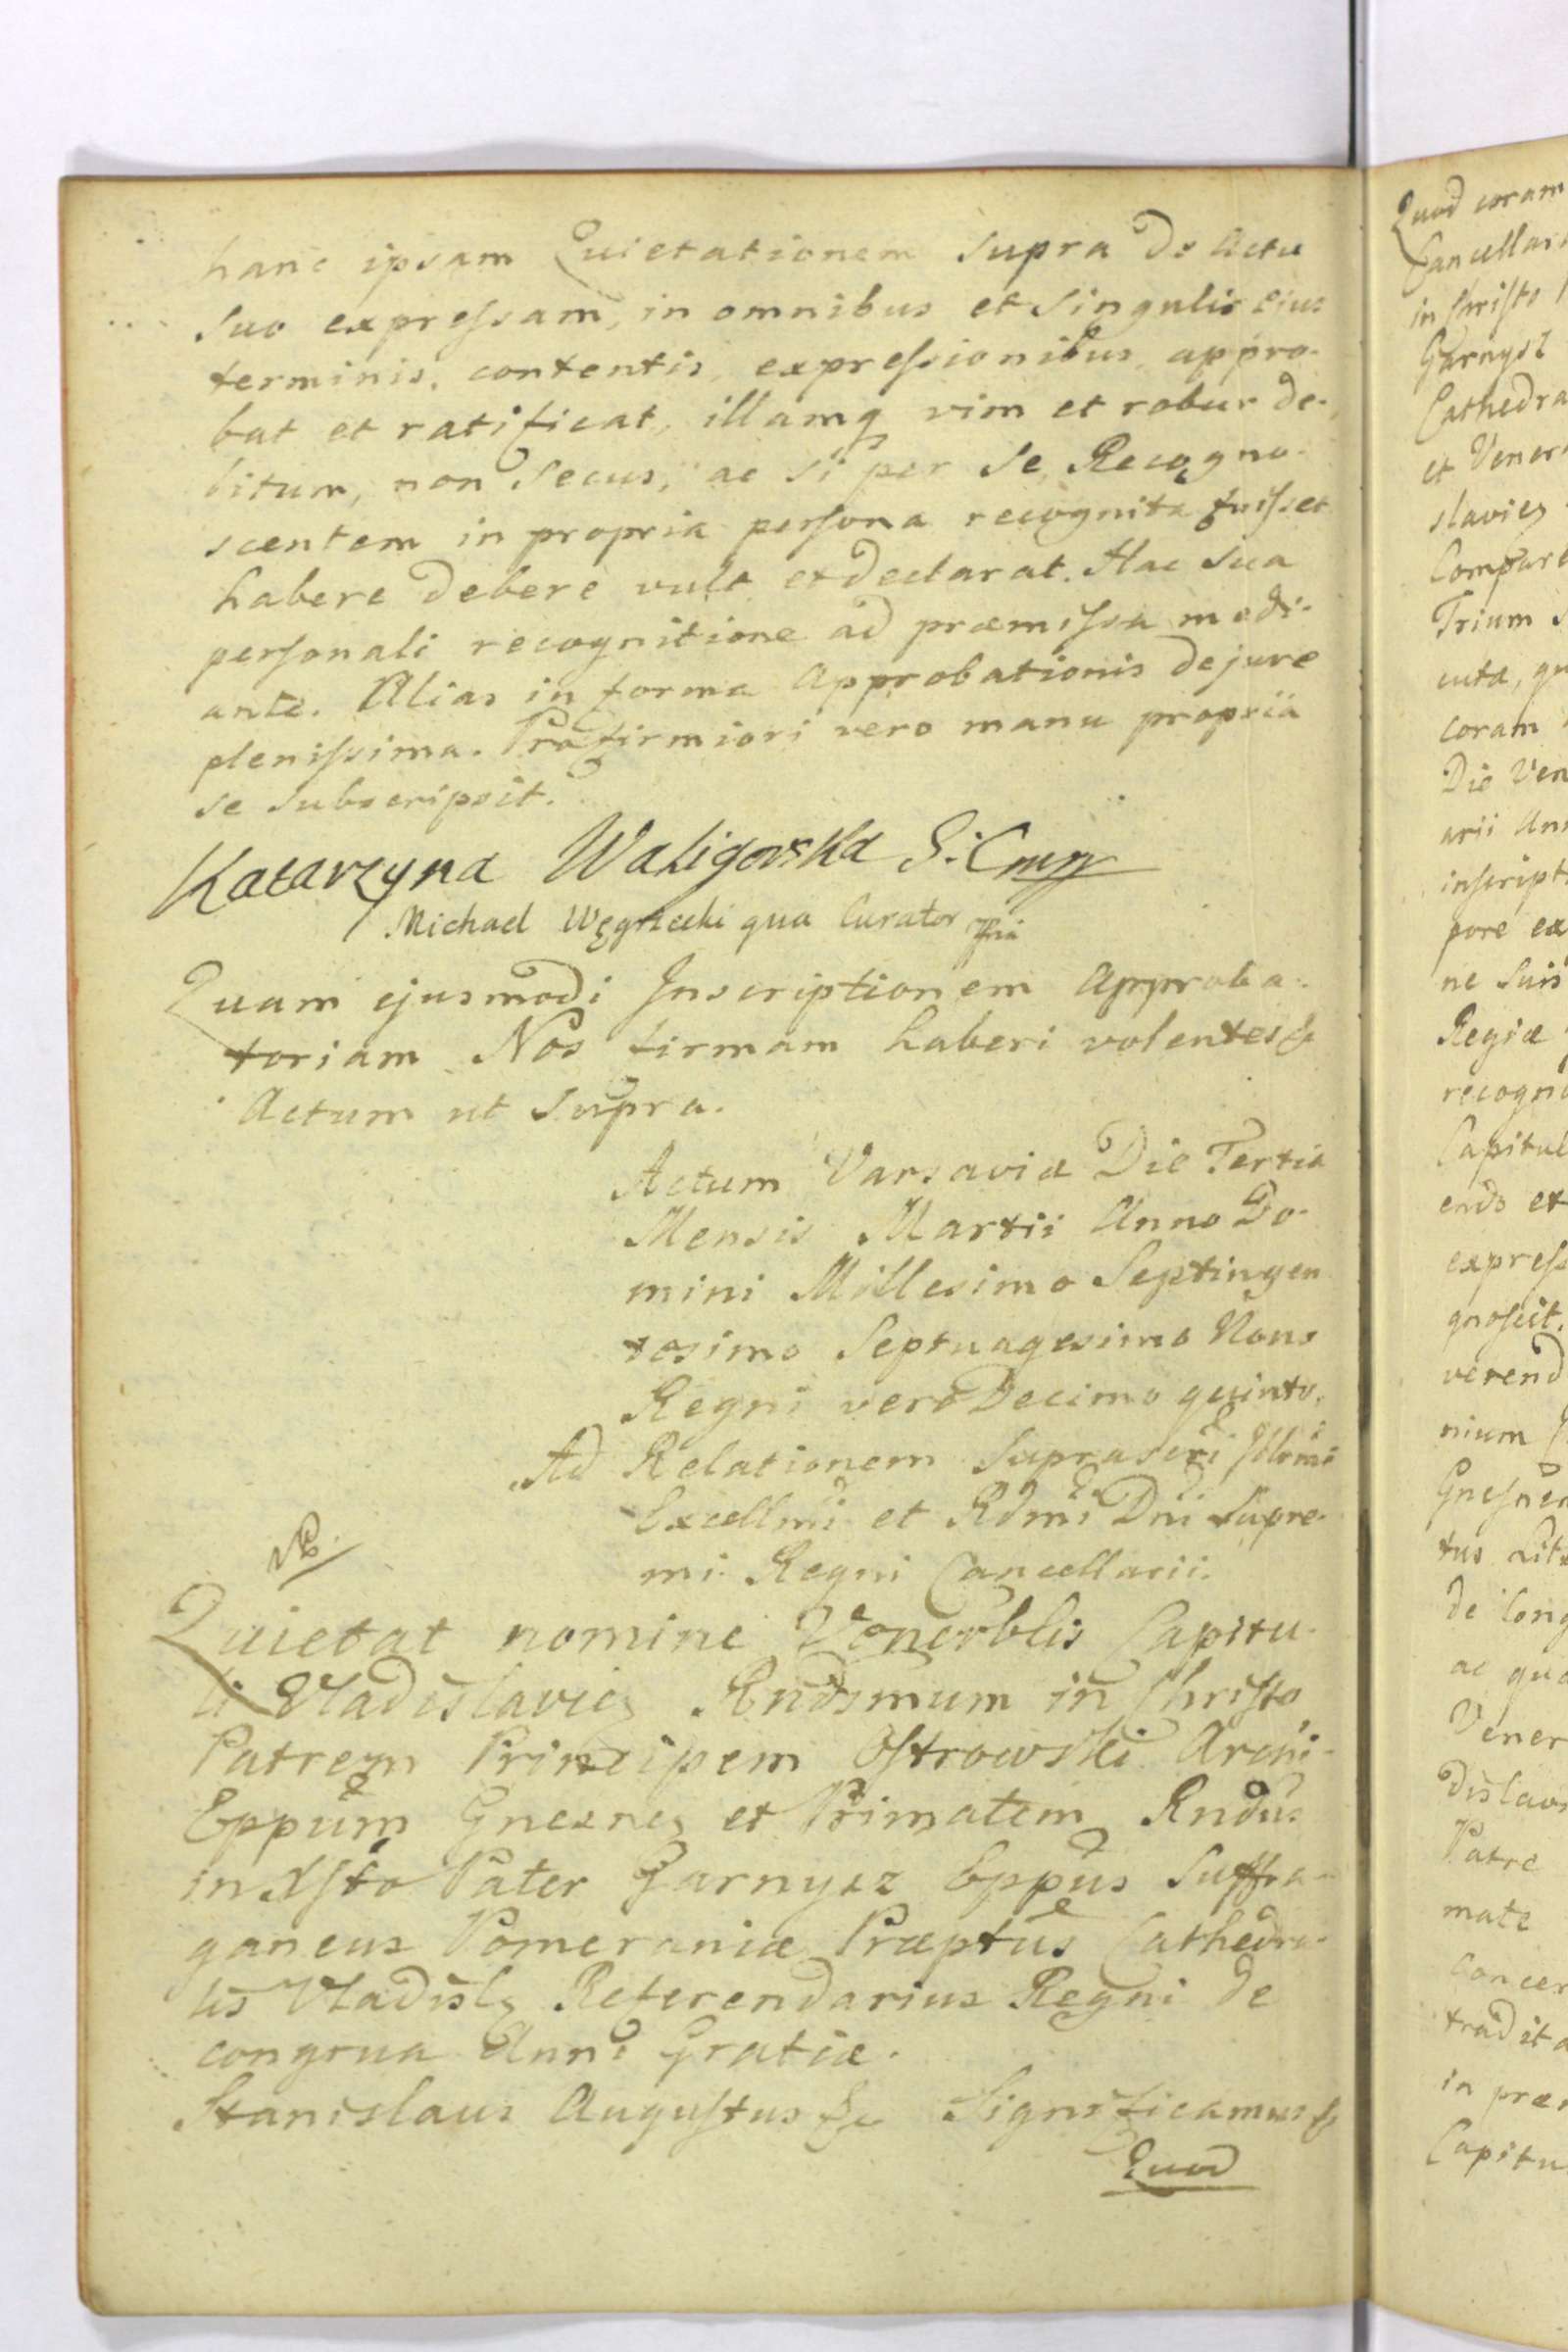 hanc ipsam Quietationem supra de actu
suo expressam, in omnibus et singulis ejus
terminis, contentis, expressionibus, appro-
bat et ratificat, illamq vim et robur de-
bitum, non secus, ac si per se Recogno-
scentem in propria persona recognita fuisset
habere debere vult et declarat. Hac sua
personali recognitione ad præmissa medi-
ante. Alias in forma Approbationis de jure
plenissima. Pro firmiori vero manu propria
se subscripsit.
Katarzyna Waligorska
Michael qua Curator
Quam ejusmodi Inscriptionem Approba-
toriam Nos firmam haberi volentes &
Actum ut supra.
Actum Varsaviæ Die Tertia
Mensis Martii Anno Do-
mini Millesimo Septingen
tesimo Septuagesimo Nono
Regni vero Decimo quinto.
Ad Relationem suprascri Illrmi
Excellmi et Rdmi Dni Supre-
mi Regni Cancellarii.
Quietat nomine Venerblis Capitu-
li Vladislavien Rndsmum in Christo
Patrem Principem Ostrowski Archi-
Eppum Gnesnen et Primatem Rndus
in Xsto Pater Garnysz Eppus Suffra-
ganeus Pomeraniæ Præptus Cathedra-
lis Vladisl Referendarius Regni de
congrua Anni Gratiæ.
Stanislaus Augustus & Significamus &
Quod
Quod coram
Cancellari
in Christo
Garnysz
Cathedra
et Vener
slavien
Compar
Trium
cuta, qu
coram
Die Ven
arii Ann
inscript
pore ex
ne suis
Regiæ
recogno
Capitul
endo et
express
gnoscit.
verend
nium
Gnesnen
tus Lit
de Cong
ac quo
Vener
dislav
Patre
mate
Concer
tradita
in præ
Capitu